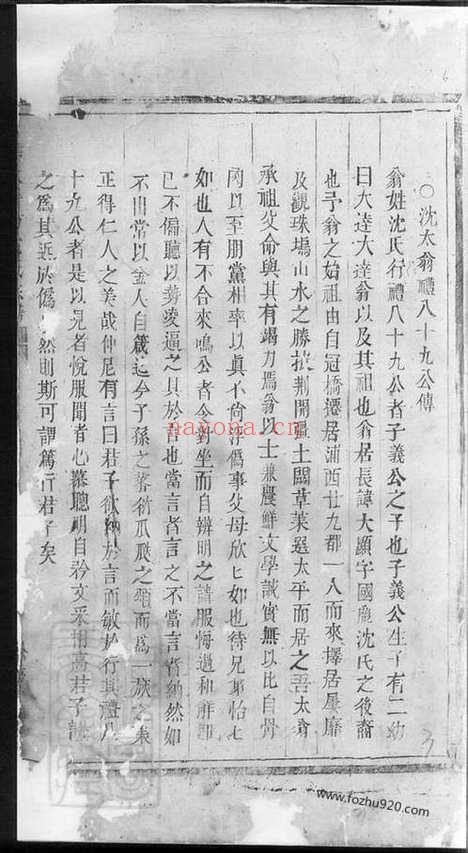 ○沈太翁禮八十九公傳
翁姓沈氏行禮八十九公者子義公之子也子義公生子有二幼
曰大達大達翁以及其祖也翁居長諱大顯字國 沈氏之後裔
也予翁之始祖由自冠橋遷居浦西廿九都一人而來擇居屋廓
及觀珠場山水之勝 荆開疆土闢草萊選太平而居之吾太翁
承祖父命與其有竭力焉翁以士兼農鮮文學誠實無以比自骨
肉以至朋黨相率以真不尚浮僞事父母欣匕如也待兄弟怡匕
如也人有不合來鳴公者令對坐而自辨明之諱服悔過和解即
已不偏聽以勢凌逼之其於言也當言者言之不當言者訥然如
不出常以金人自箴迄今子孫之蕃衍瓜瓞之 而爲一族之
正得仁人之美哉仲尼有言曰君子欲納於言而敏於行其禮八
十九公者是以見者悅服聞者心慕聰明自矜文采相高君子
之爲其近於僞 然則斯可謂篤行君子矣
3
nayona.cn
www.fozhu920.com